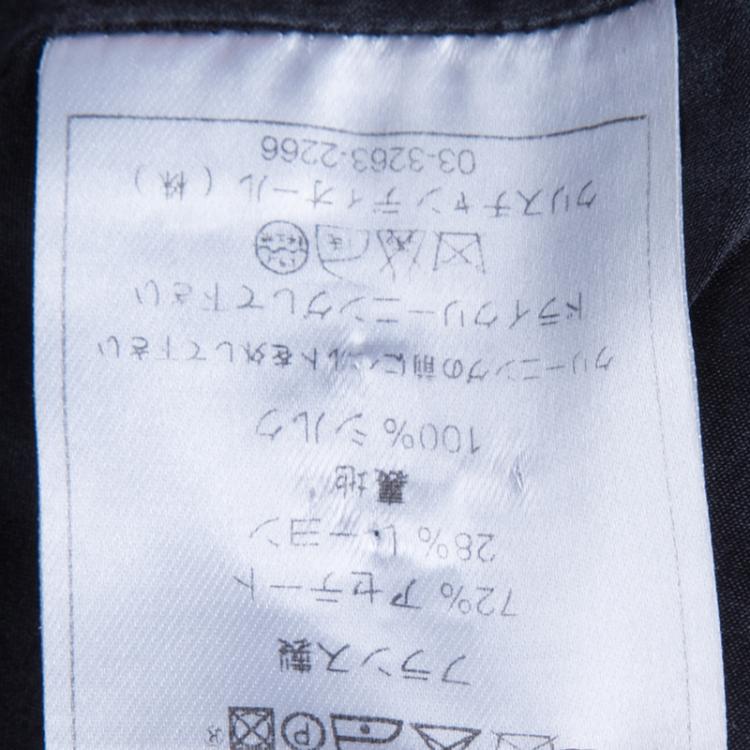 フランス製
72% アセテート
28% レーヨン
裏地
100% シルク
クリーニングの前にベルトを外して下さい
ドライクリーニングして下さい
クリスチャンディオール(株)
03-3263-2266